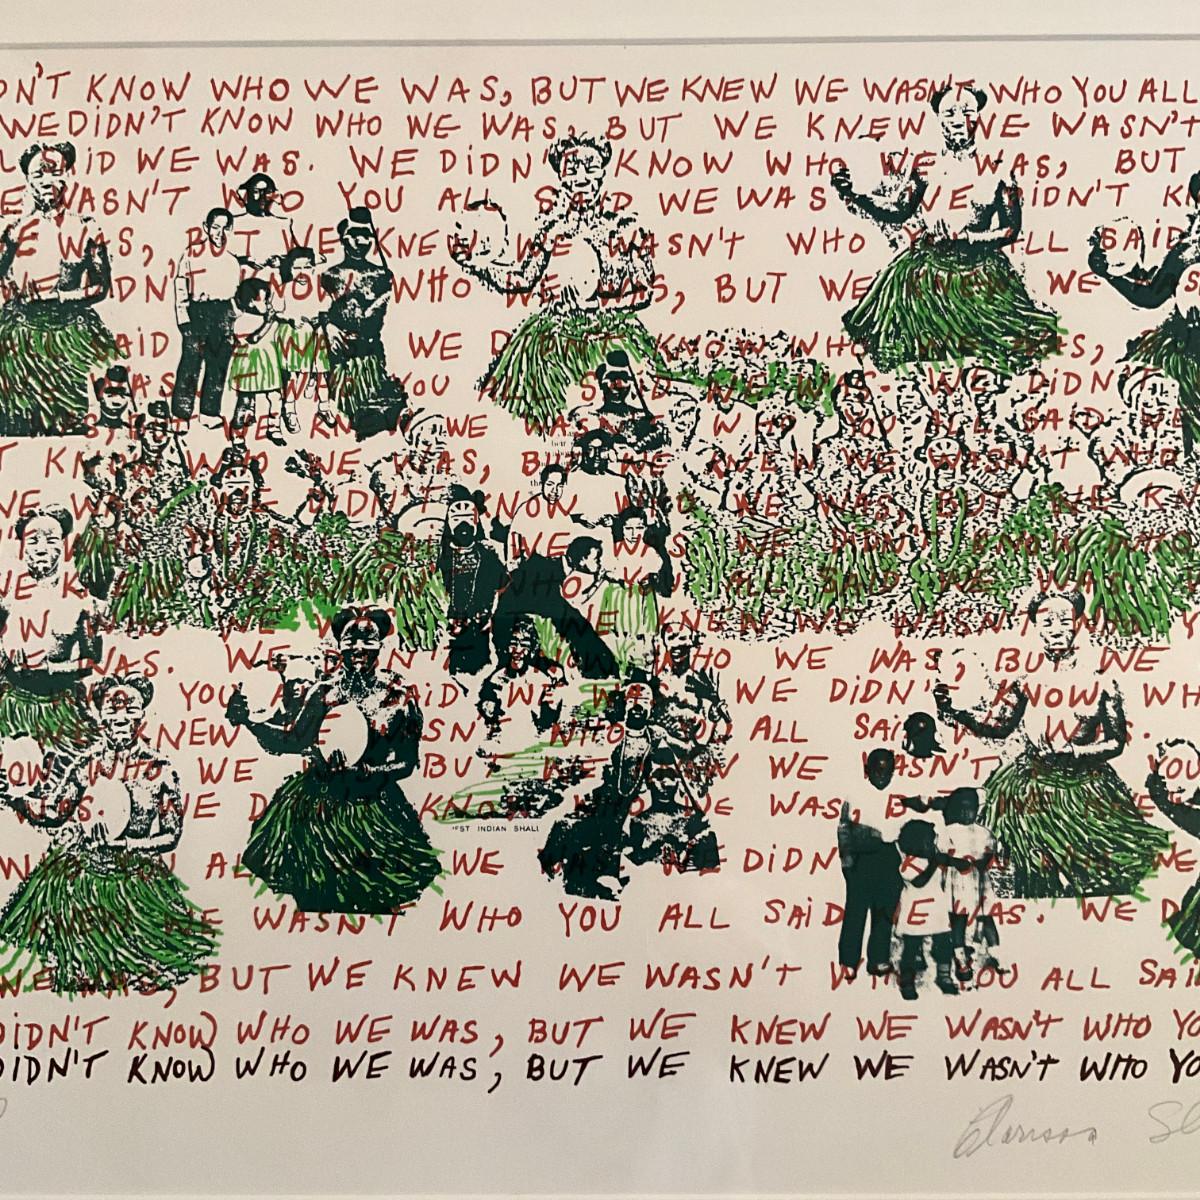 DN'T KNOW WHO WE WAS, BUT WE KNEW WE WASN'T WHO YOU ALL
WE DIDN'T KNOW WHO WE WAS, BUT WE KNEW WE WASN'T
L SAID WE WAS. WE DIDN'T KNOW WHO WE WAS, BUT
E WASN'T WHO YOU ALL SAID WE WAS. WE DIDN'T K
E WAS, BUT WE KNEW WE WASN'T WHO YOU ALL SAID
WE DIDN'T KNOW WHO WE WAS, BUT WE KNEW WE WAS
ALL SAID WE WAS. WE DIDN'T KNOW WHO WE WAS,
WASN'T WHO YOU ALL SAID WE WAS. WE DIDN'T
WAS, BUT WE KNEW WE WASN'T WHO YOU ALL SAID WE
T KNOW WHO WE WAS, BUT WE KNEW WE WASN'T WHO
WE WAS. WE DIDN'T KNOW WHO WE WAS, BUT WE KN
N'T WHO YOU ALL SAID WE WAS. WE DIDN'T KNOW WHO
WE KNEW WE WASN'T WHO YOU ALL SAID WE WAS.
OW WHO WE WAS, BUT WE KNEW WE WASN'T WHO Y
E WAS. WE DIDN'T KNOW WHO WE WAS, BUT WE
WHO YOU ALL SAID WE WAS. WE DIDN'T KNOW WH
WE KNEW WE WASN'T WHO YOU ALL SAID WE WAS.
OW WHO WE WAS, BUT WE KNEW WE WASN'T WHO YOU
WAS. WE DIDN'T KNOW WHO WE WAS, BUT WE KNEW
WEST INDIAN SHALI
WHO YOU ALL SAID WE WAS. WE DIDN'T KNOW WHO WE
KNEW WE WASN'T WHO YOU ALL SAID WE WAS. WE D
WE WAS, BUT WE KNEW WE WASN'T WHO YOU ALL SAI
DIDN'T KNOW WHO WE WAS, BUT WE KNEW WE WASN'T WHO YO
DIDN'T KNOW WHO WE WAS, BUT WE KNEW WE WASN'T WHO YO
Clarissa Sl